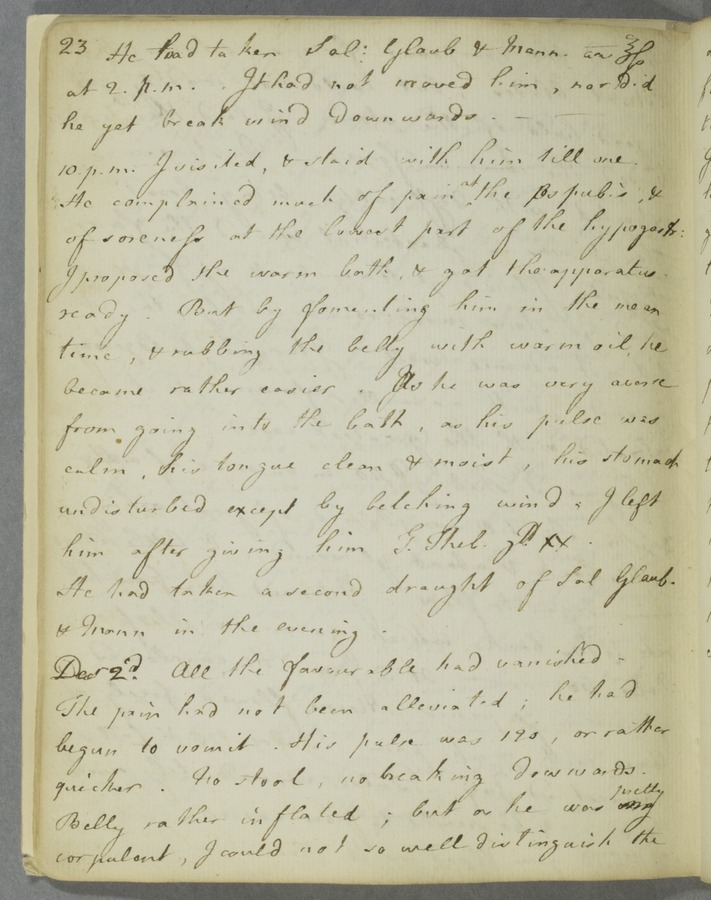 23 He had taken Sal: Glaub & Mann. aa ℥ss
at 2. p.m. . It had not moved him, nor did
he yet break wind downwards. —
10. p.m. I visited, & staid with him till one
He complained much of pain at the os pubis, &
of soreness at the lowest part of the hypogastr:
I proposed the warm bath, & got the apparatus
ready. But by fomenting him in the mean
time, & rubbing the belly with warm oil, he
became rather easier. As he was very averse
from going into the bath, as his pulse was
calm, his tongue clean & moist, his stomach
undisturbed except by belching wind: I left
him after giving him T. Theb. gtt xx.
He had taken a second draught of Sal Glaub.
& Mann in the evening.
Decr 2d. All the favourable had vanished.
The pain had not been alleviated; he had
begun to vomit. His pulse was 120, or rather
quicker. No stool, no breaking downwards.
Belly rather inflated; but as he was pretty
corpulent, I could not so well distinguish the